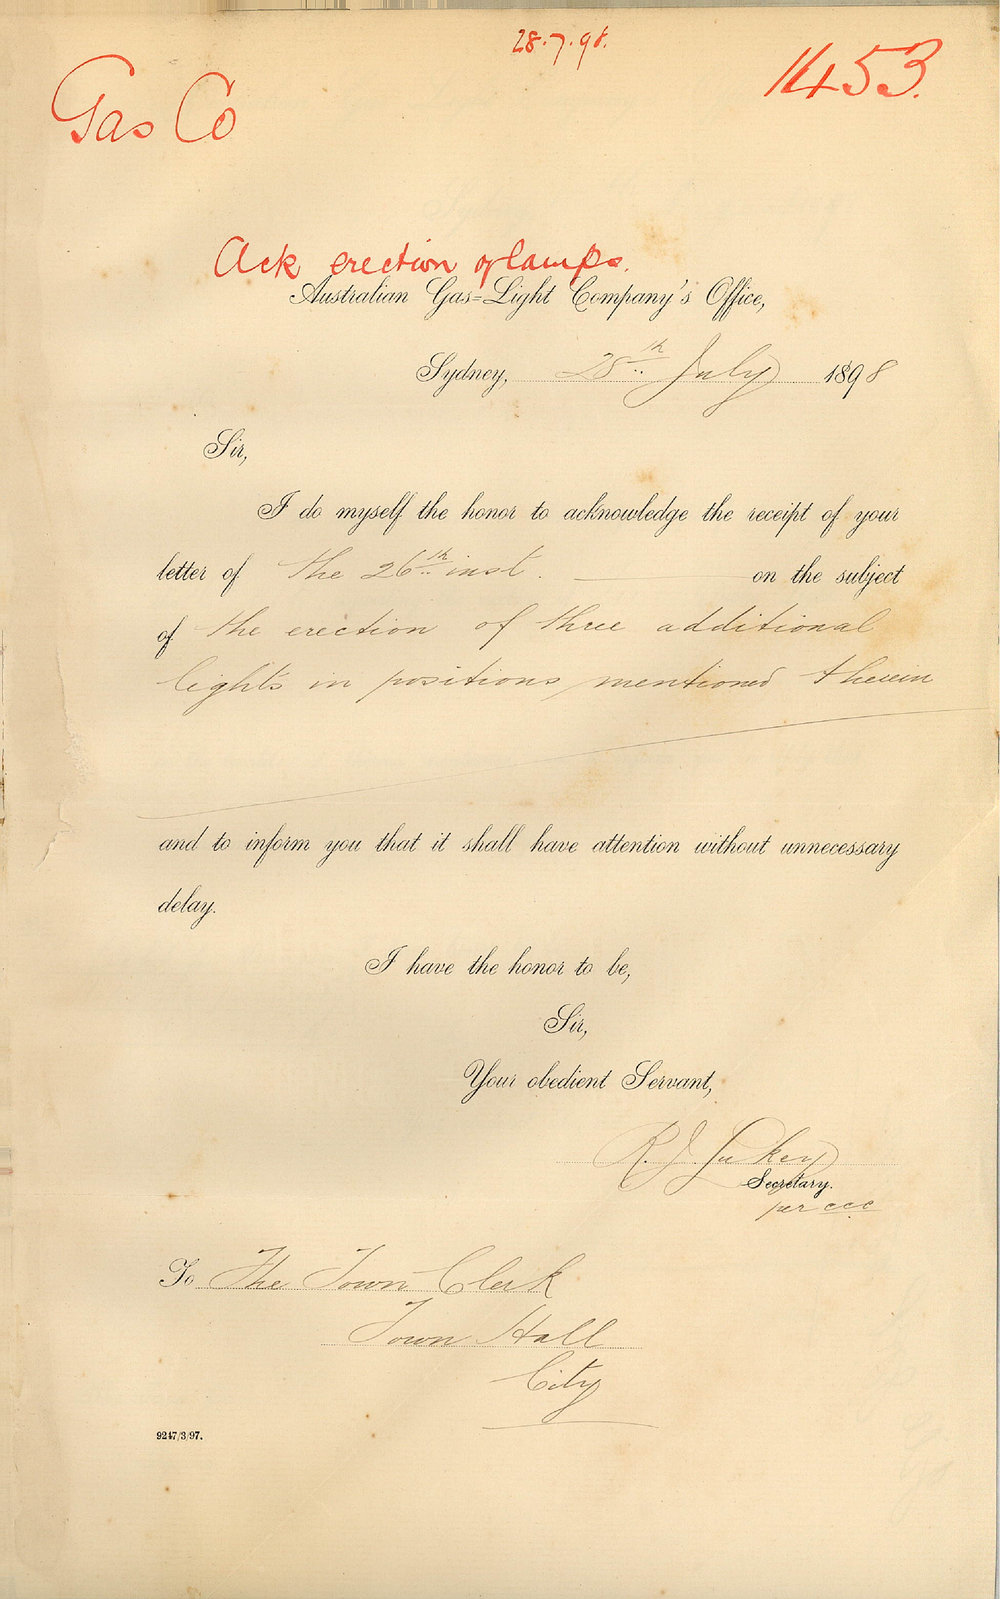 28.7.98.
Gas Co
1453.
Ack erection of lamps.
Australian Gas=Light Company's Office,
Sydney, 28th July 1898
Sir,
I do myself the honor to acknowledge the receipt of your
letter of the 26th inst. on the subject
of the erection of three additional
lights in positions mentioned therein
and to inform you that it shall have attention without unnecessary
delay.
I have the honor to be,
Sir,
Your obedient Servant,
R. J. Lukey
Secretary.
per ccc
To The Town Clerk
Town Hall
City
9247/3/97.